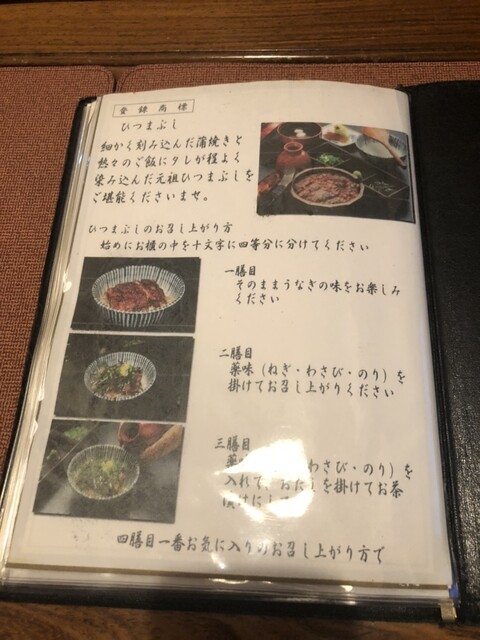 登録商標
ひつまぶし
細かく刻み込んだ蒲焼きと
熱々のご飯にタレが程よく
染み込んだ元祖ひつまぶしを
ご堪能くださいませ。
ひつまぶしのお召し上がり方
始めにお櫃の中を十文字に四等分に分けてください
一膳目
そのままうなぎの味をお楽しみ
ください
二膳目
薬味（ねぎ・わさび・のり）を
掛けてお召し上がりください
三膳目
わさび・のり）を
入れて、おだしを掛けてお茶
漬けにして
四膳目一番お気に入りのお召し上がり方で